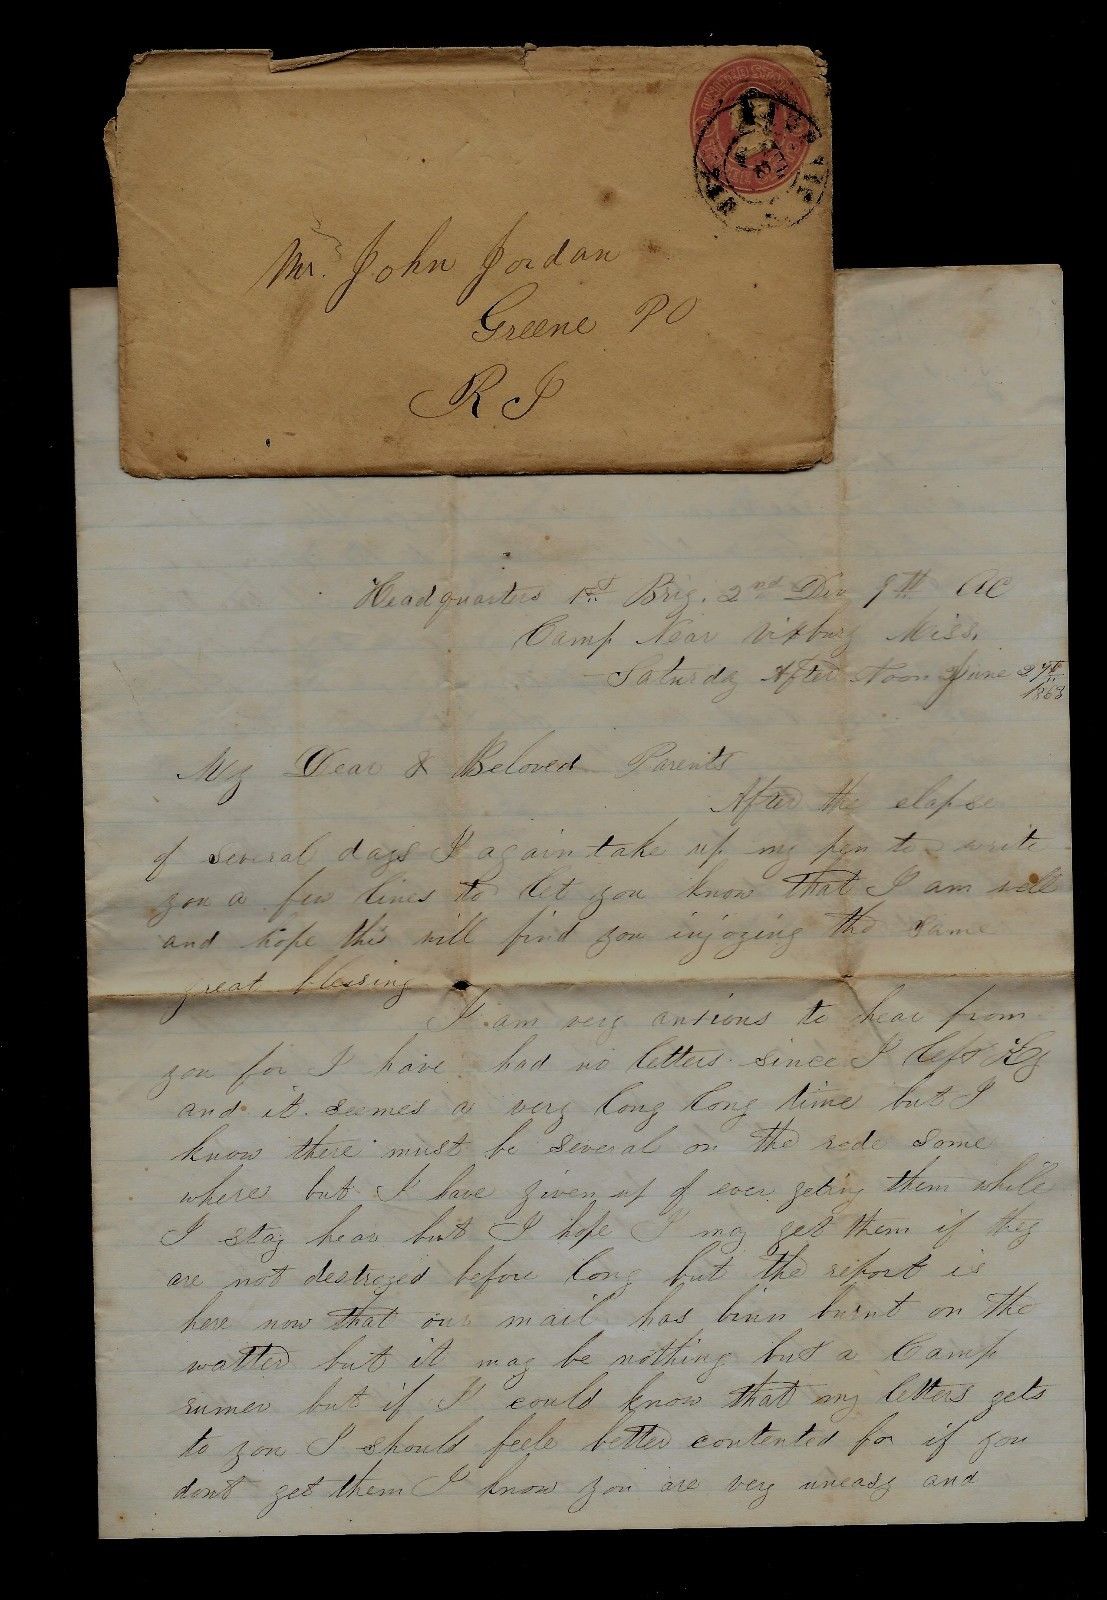 Mr. John Jordan
Greene P O
R I
Headquarters 1st Brig. 2nd Div 9th AC
Camp Near Vixburg Miss.
Saturday After Noon June 27th
1863
My Dear & Beloved Parents
After the elapse
of several days I again take up my pen to write
you a few lines to let you know that I am well
and hope this will find you injoying the same
great blessing
I am very anxious to hear from
you for I have had no letters since I left Ky
and it seemes a very long long time but I
know there must be several on the rode some
where but I have given up of ever geting them while
I stay hear but I hope I may get them if they
are not destroyed before long but the report is
here now that our mail has binn burnt on the
watter but it may be nothing but a Camp
rumer but if I could know that my letters gets
to you I should feele better contented for if you
dont get them I know you are very uneasy and